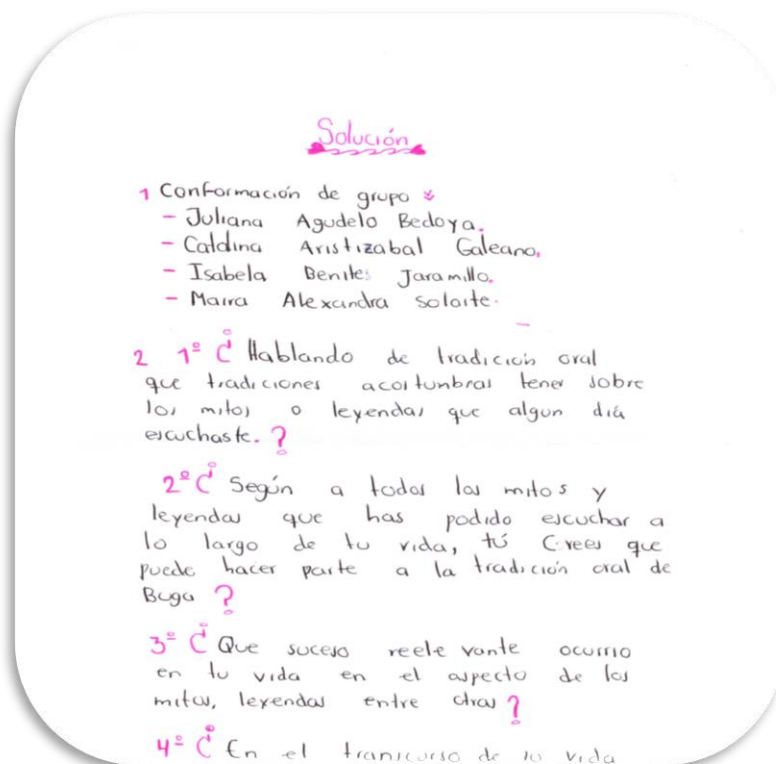 Solución
1 Conformación de grupo
- Juliana Agudelo Bedoya.
- Catalina Aristizabal Galeano.
- Isabela Benites Jaramillo.
- Maira Alexandra Solarte.
2 1º ¿ Hablando de tradición oral
que tradiciones acostunbras tener sobre
los mitos o leyendas que algun día
escuchaste. ?
2º ¿ Según a todos los mitos y
leyendas que has podido escuchar a
lo largo de tu vida, tú Crees que
puede hacer parte a la tradición oral de
Buga ?
3º ¿ Que suceso reelevante ocurrio
en tu vida en el aspecto de los
mitos, leyendas entre otras ?
4º ¿ En el transcurso de su vida